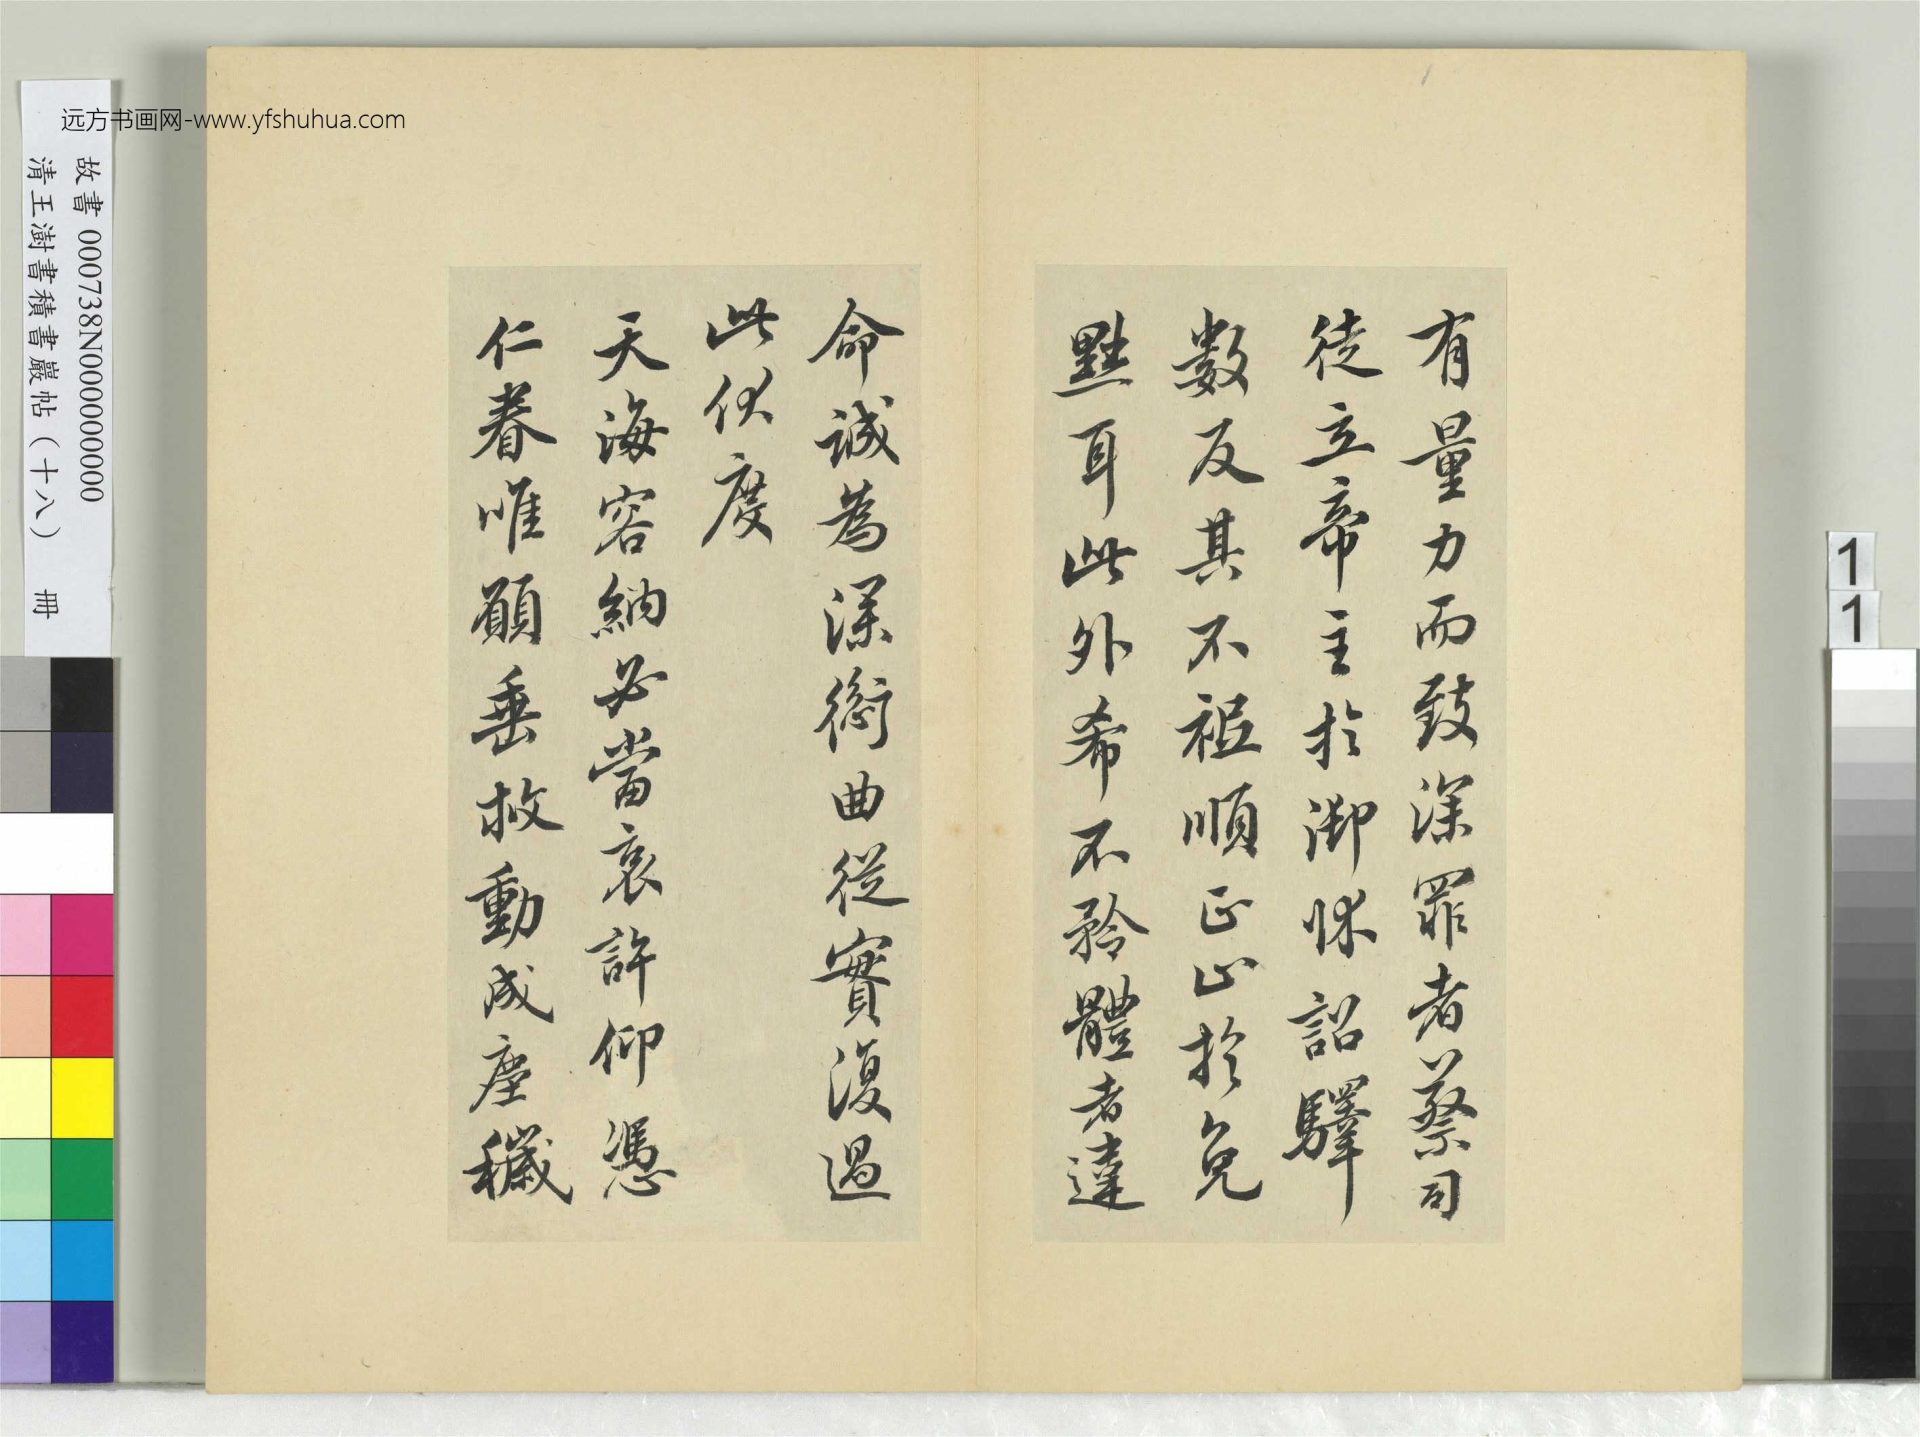 有量力而致深罪者蔡司
徒立帝主於御詔驛
數反其不祗順正止於免
黜耳此外希不矜體者違
命誠為深銜曲從實復過
此伏度
天海容納必當哀許仰憑
仁眷唯願垂救動成塵穢
远方书画网-www.yfshuhua.com
故書 000738N000000000
清王澍書積書巖帖（十八） 冊
1
1